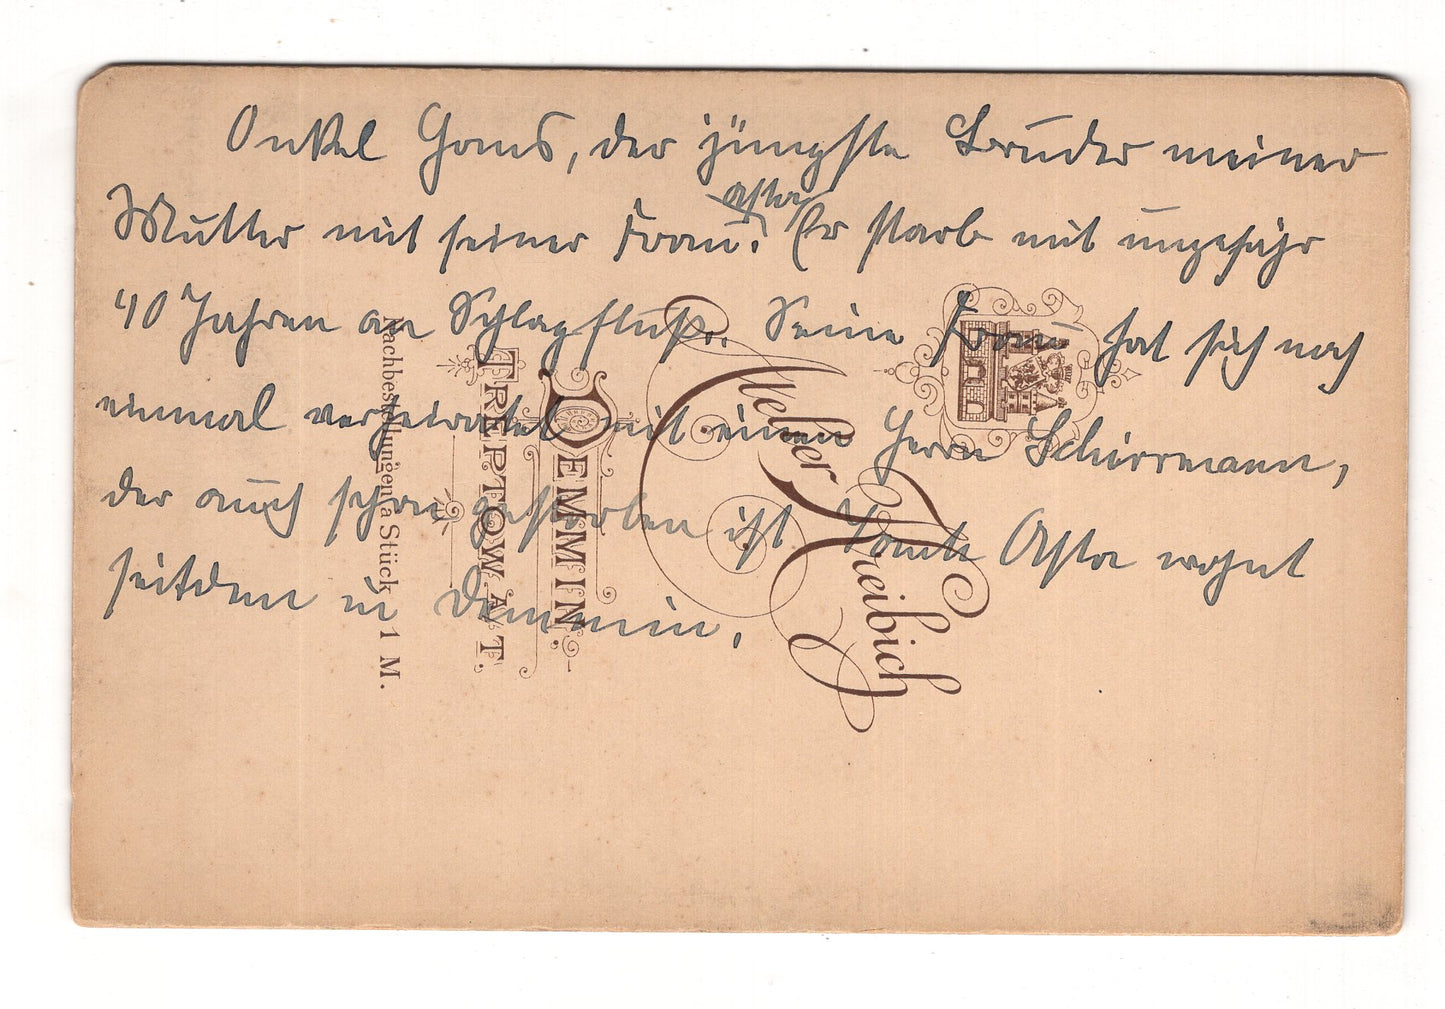 Onkel Hans, der jüngste Bruder meiner
Asta
Mutter mit seiner Frau. Er starb mit ungefähr
40 Jahren an Schlagfluß. Seine Frau hat sich noch
einmal verheiratet mit einem Herrn Schirrmann,
der auch schon gestorben ist. Tante Asta wohnt
seitdem in Demmin.
Melher Kreibich
DEMMIN.
TREPTOW A. T.
Nachbestellungen à Stück 1 M.